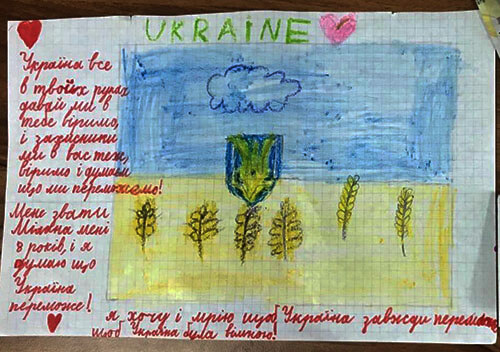 UKRAINE
Україна все
в твоїх руках
давай ми в
тебе віримо,
і захисники
ми в вас теж,
віримо і думаєм
що ми переможемо!
Мене звати
Міляна мені
8 років, і я
думаю що
Україна
переможе!
я хочу і мрію щоб Україна завжди перемагала
щоб Україна була вільною!